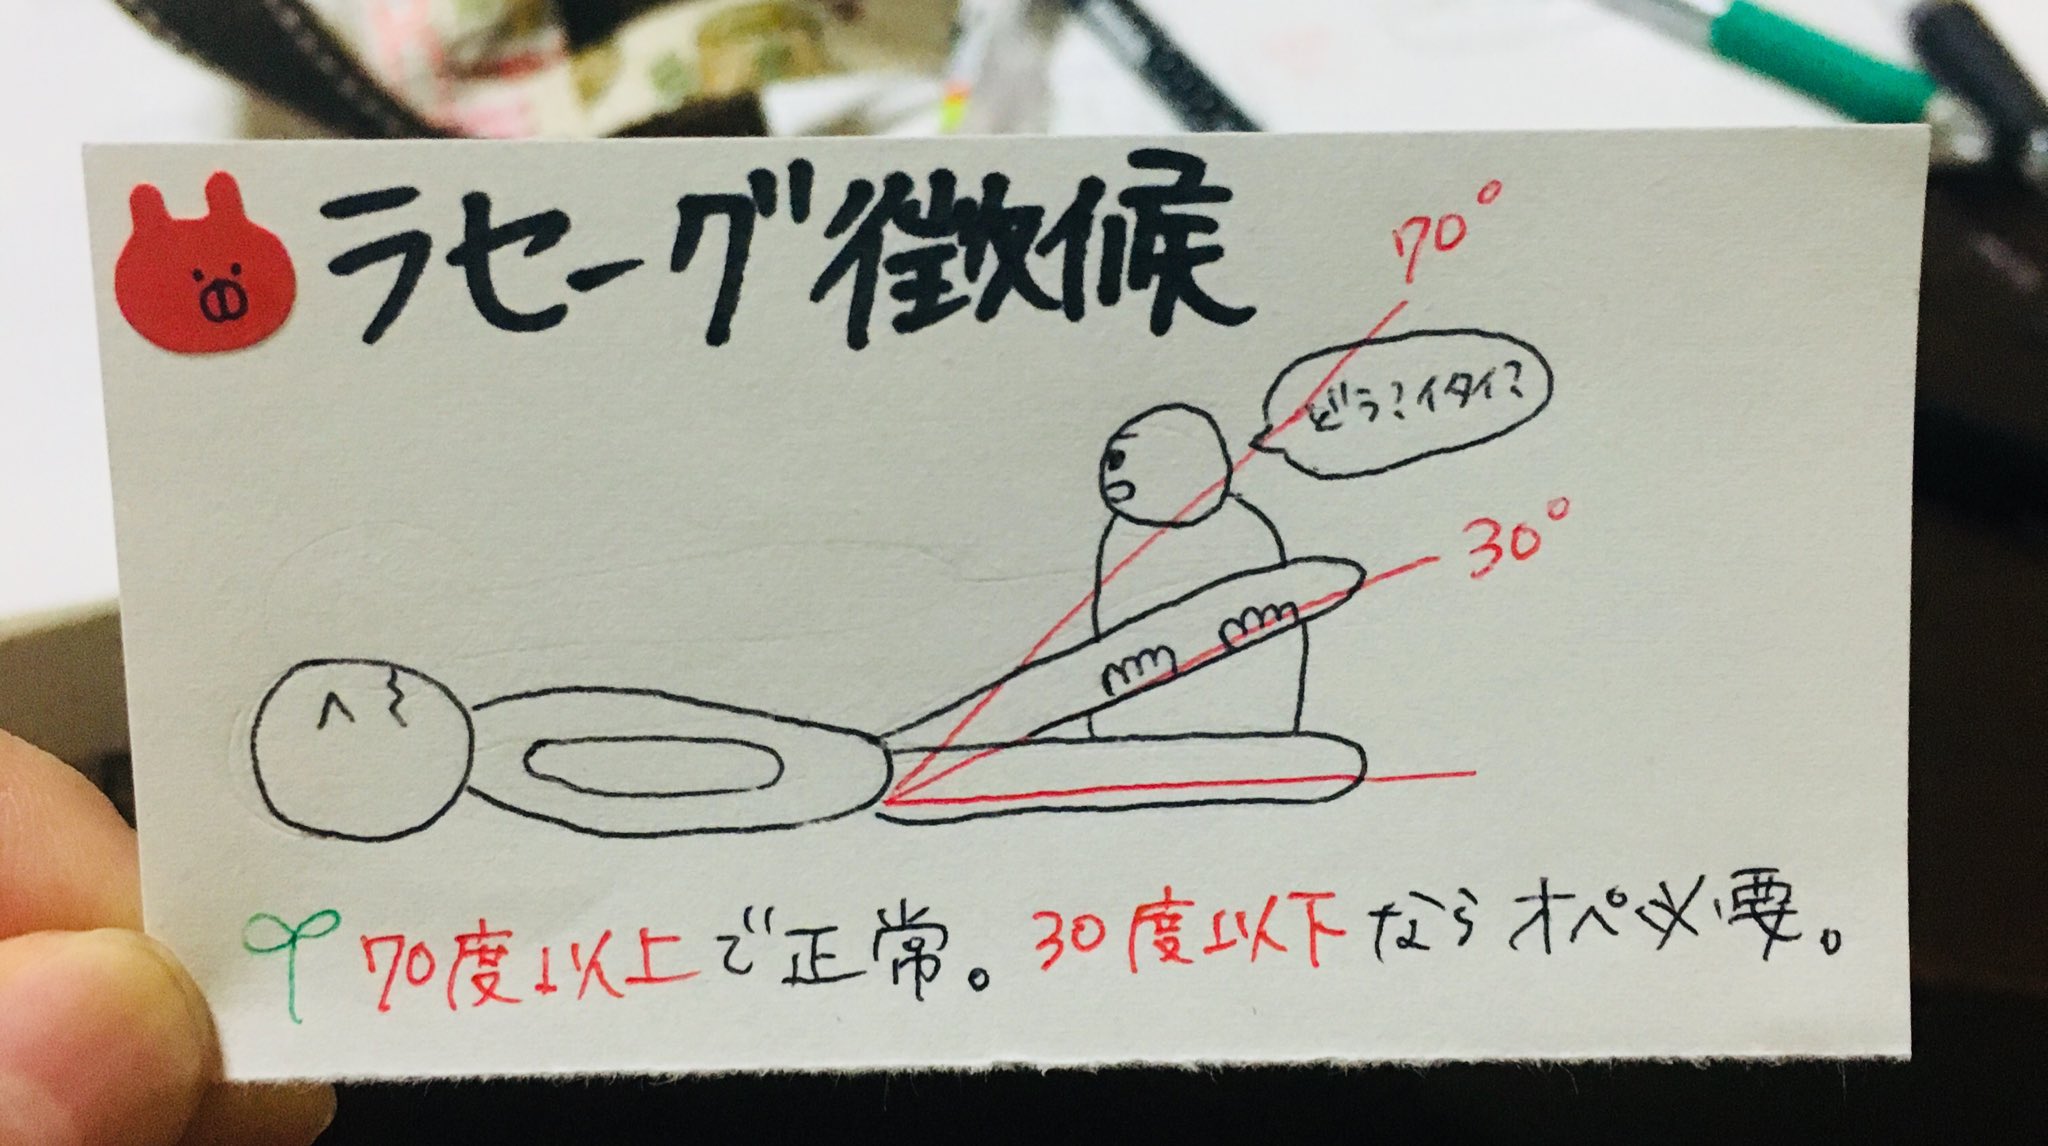 ラセーグ徴候
70°
どう?イタイ?
30°
70度以上で正常。30度以下ならオペ必要。